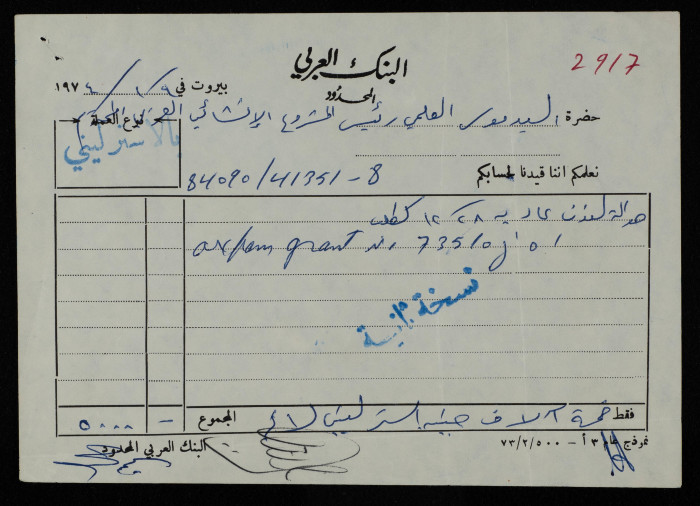 البنك العربي
المحدود
2917
بيروت في ٩/١/١٩٧٤
حضرة السيد موسى العلمي رئيس المشروع الإنشائي العربي
نوع العملة
بالاسترليني
نعلمكم اننا قيدنا لحسابكم
84090/41351-8
حوالة لندن عادية ١٢/٢٨ كطلب
oxfam grant No 73510
نسخة ثانية
فقط خمسة آلاف جنيه استرليني لا غير
المجموع
٥٠٠٠ -
البنك العربي المحدود
نموذج عام ٣ أ - ٧٣/٢/٥٠٠